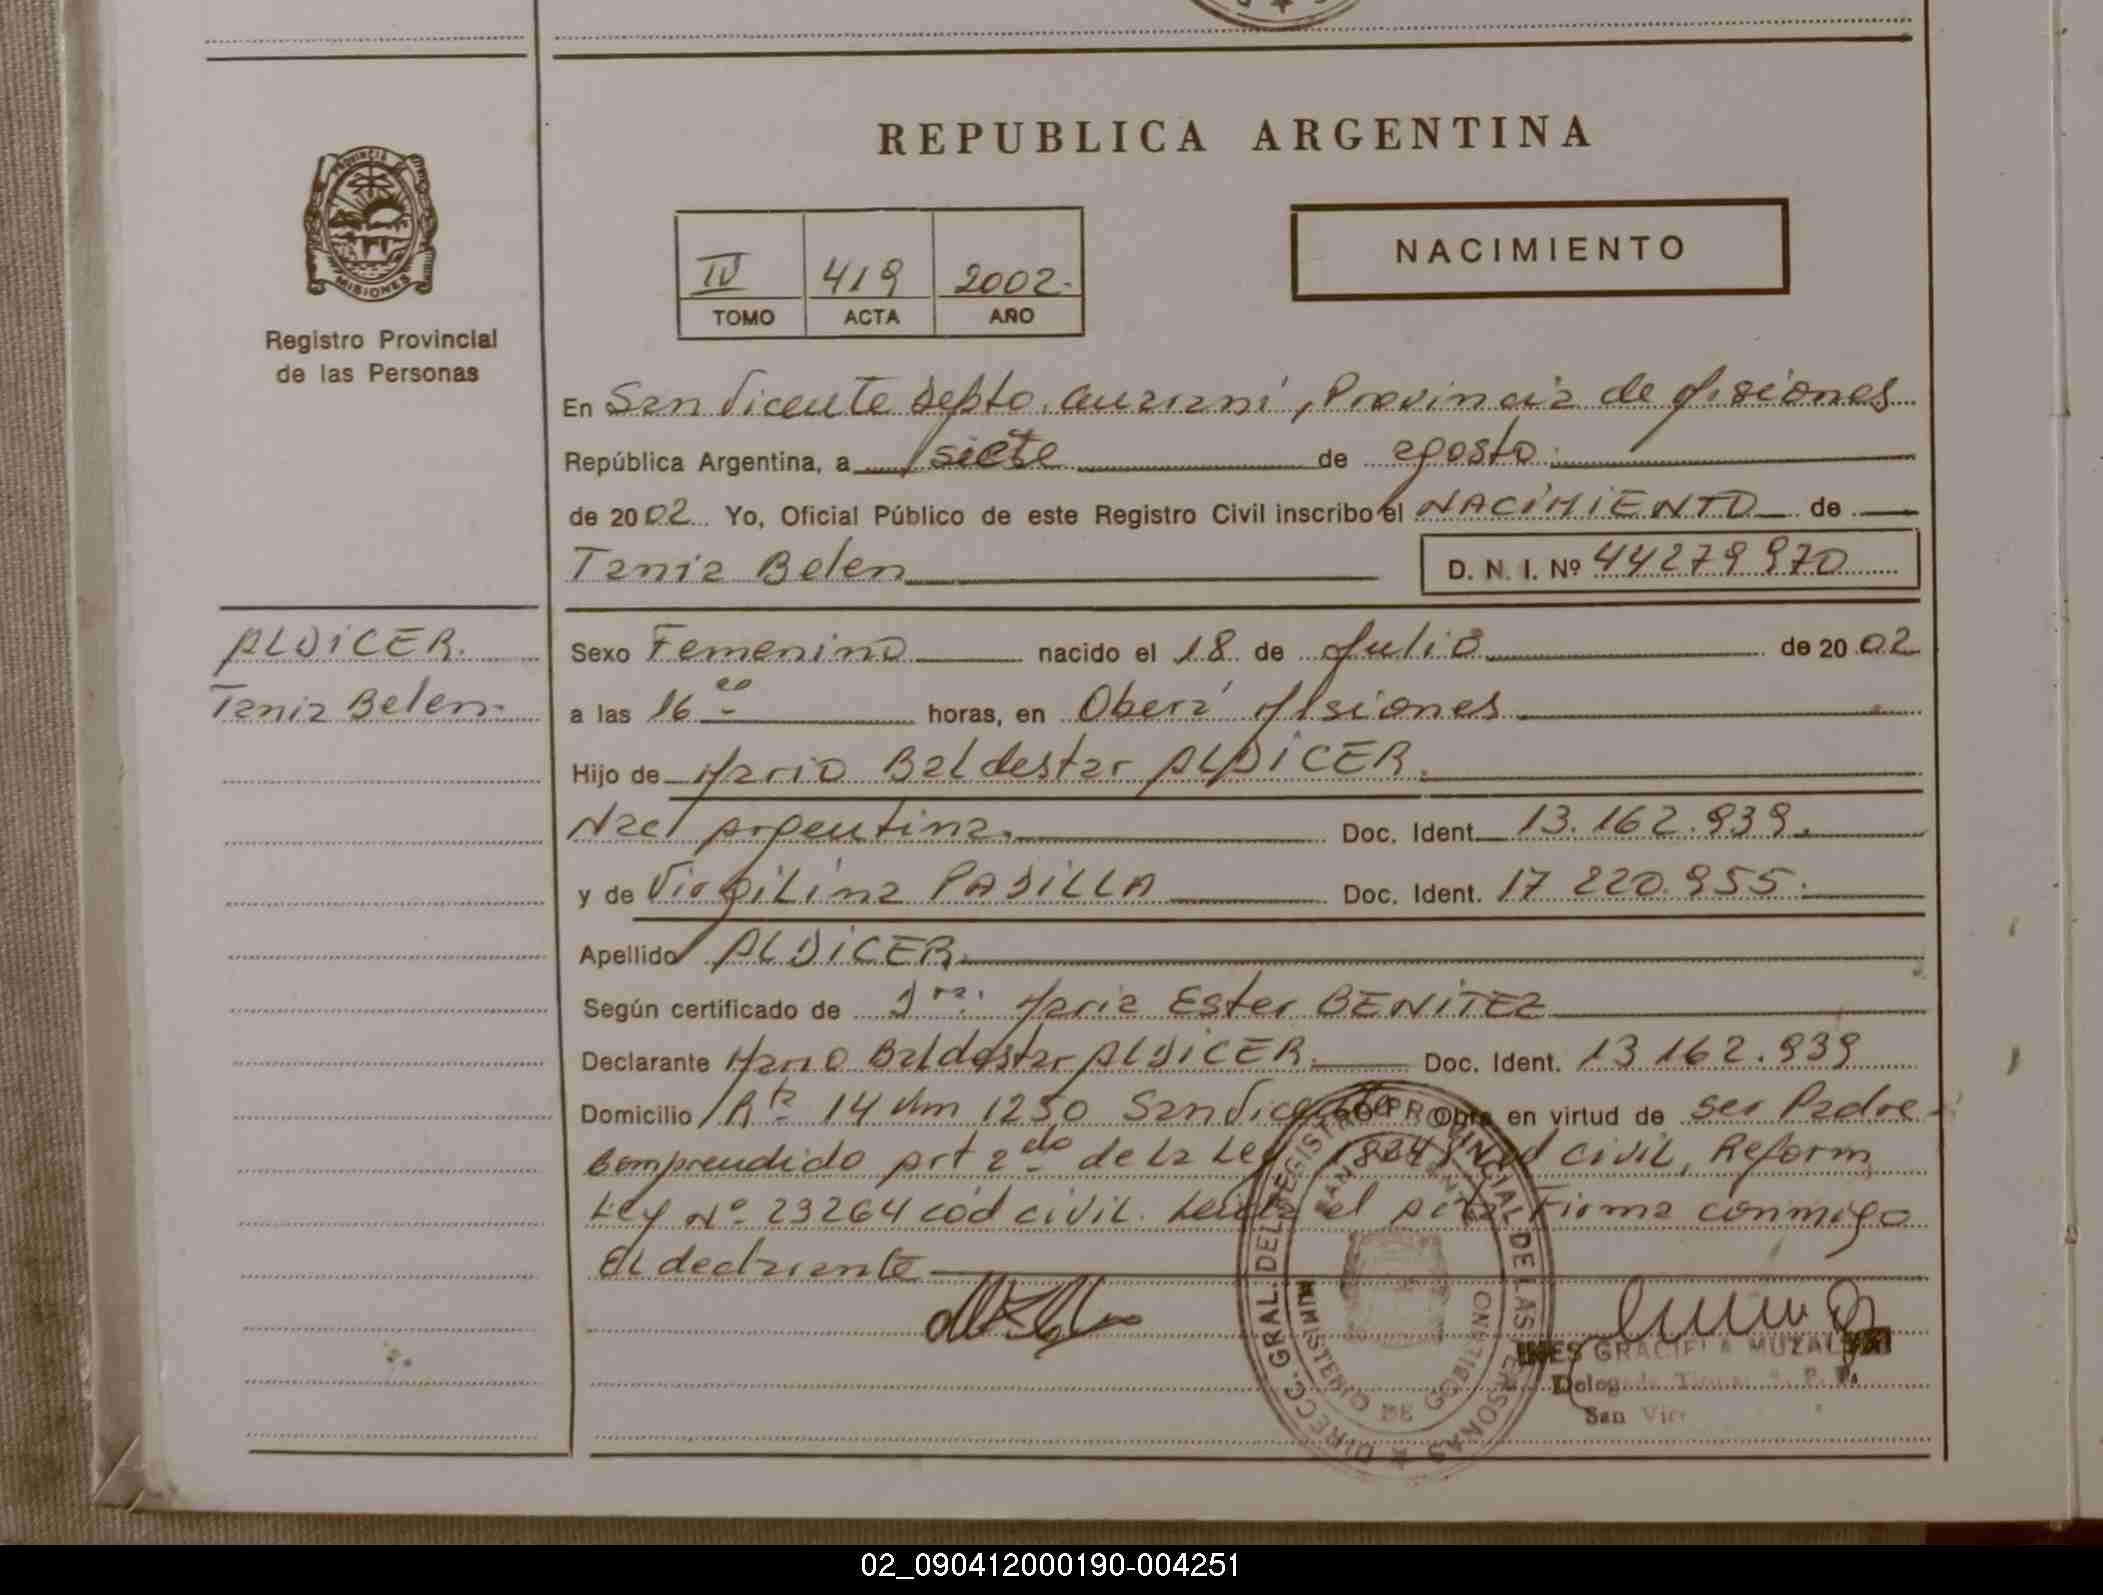 REPUBLICA ARGENTINA
PROVINCIA
MISIONES
Registro Provincial
de las Personas
IV 419 2002.
TOMO ACTA AÑO
NACIMIENTO
En San Vicente depto. Guaraní, Provincia de Misiones
República Argentina, a siete de agosto.
de 2002 Yo, Oficial Público de este Registro Civil inscribo el NACIMIENTO de
Tania Belen D. N. I. Nº 44279970
ALDICER.
Tania Belen.
Sexo Femenino nacido el 18 de Julio de 2002
a las 16 horas, en Oberá Misiones
Hijo de Mario Baldestar ALDICER.
Nac Argentina. Doc. Ident. 13.162.939.
y de Virgilina PADILLA Doc. Ident. 17 220.955.
Apellido ALDICER.
Según certificado de Dra. Maria Ester BENITEZ
Declarante Mario Baldestar ALDICER. Doc. Ident. 13 162.939
Domicilio Rta 14 Km 1250 San Vicente Obra en virtud de ser Padre
comprendido Art 2do de la Ley 18248 Cod civil, Reform
Ley Nº 23264 cód civil. Leida el acta Firma conmigo
El declarante
DIRECC. GRAL. DEL REGISTRO PROVINCIAL DE LAS PERSONAS
SAN VICENTE
MINISTERIO DE GOBIERNO
INES GRACIELA
Delegada Titular R. P. P.
San Vic
02_090412000190-004251